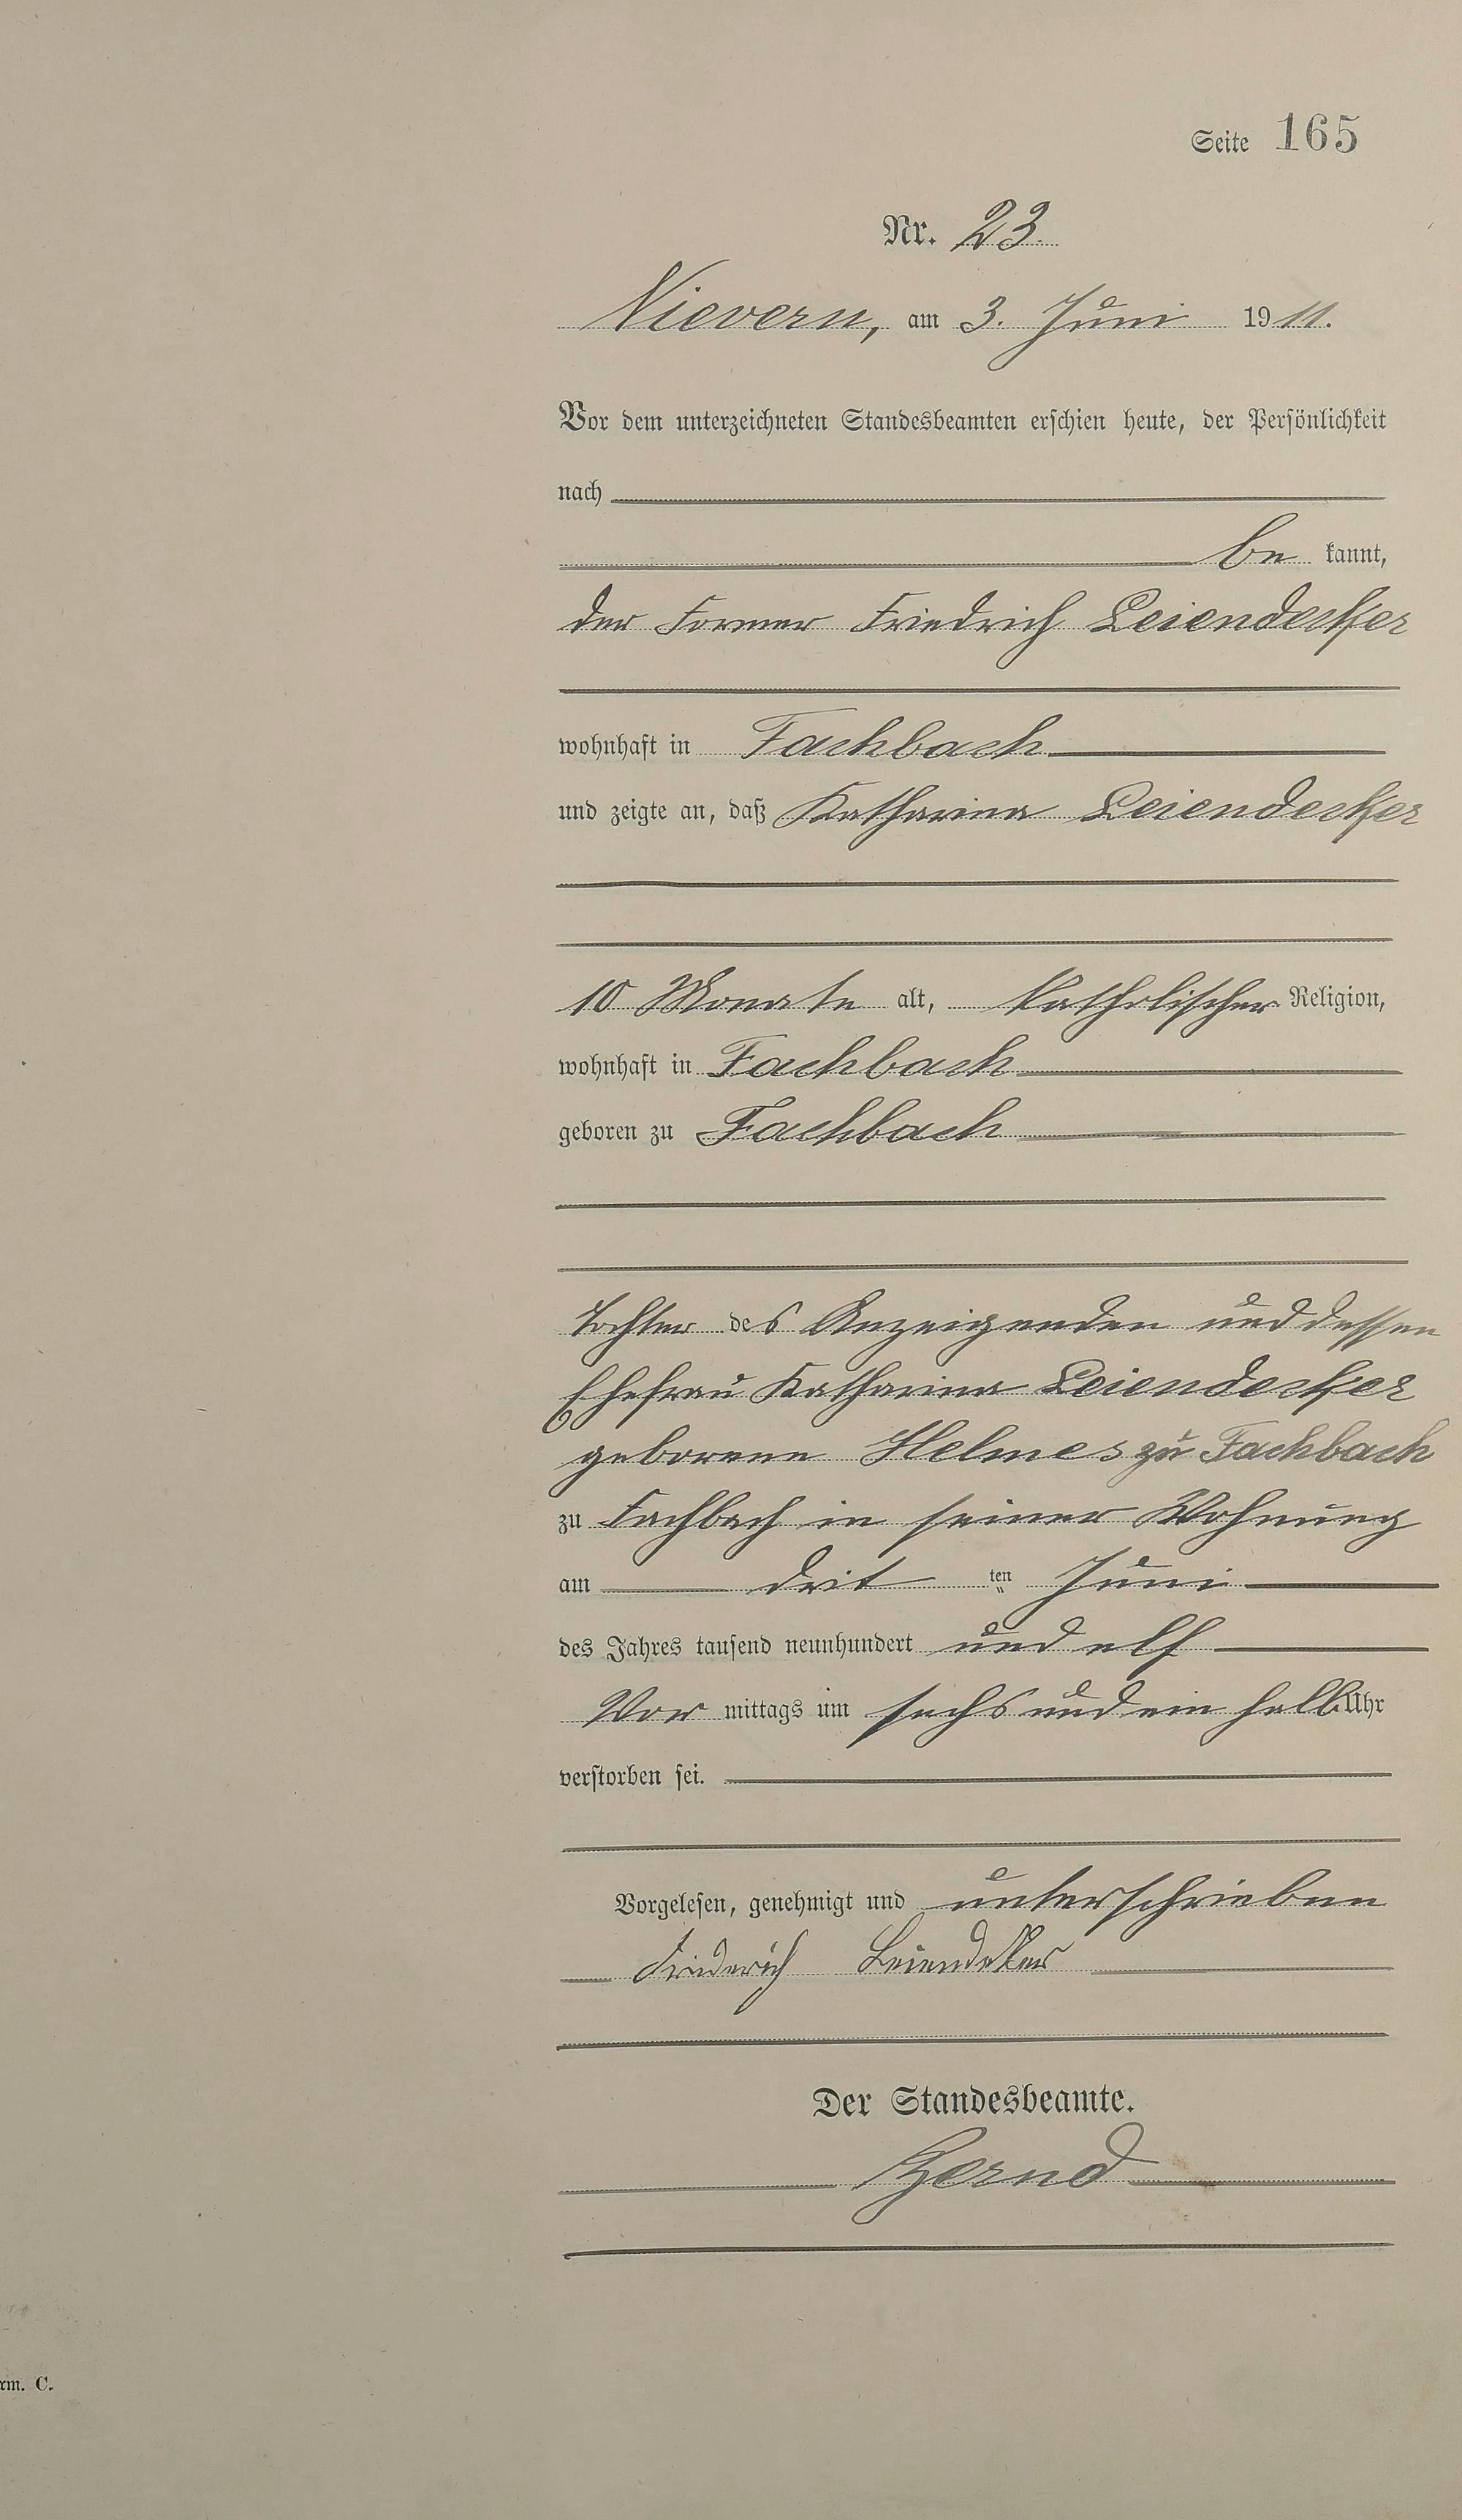 Seite 165
Nr. 23.
Nievern, am 3. Juni 1911.
Vor dem unterzeichneten Standesbeamten erschien heute, der Persönlichkeit
nach
be kannt,
der Former Friedrich Leiendecker
wohnhaft in Fachbach
und zeigte an, daß Katharina Leiendecker
10 Monate alt, katholischer Religion,
wohnhaft in Fachbach
geboren zu Fachbach
Tochter des Anzeigenden und dessen
Ehefrau Katharina Leiendecker
geborene Helmes zu Fachbach
zu Fachbach in seiner Wohnung
am drit ten Juni
des Jahres tausend neunhundert und elf
Vor mittags um sechs und ein halb Uhr
verstorben sei.
Vorgelesen, genehmigt und unterschrieben
Friderich Leiendeker
Der Standesbeamte.
rm. C.